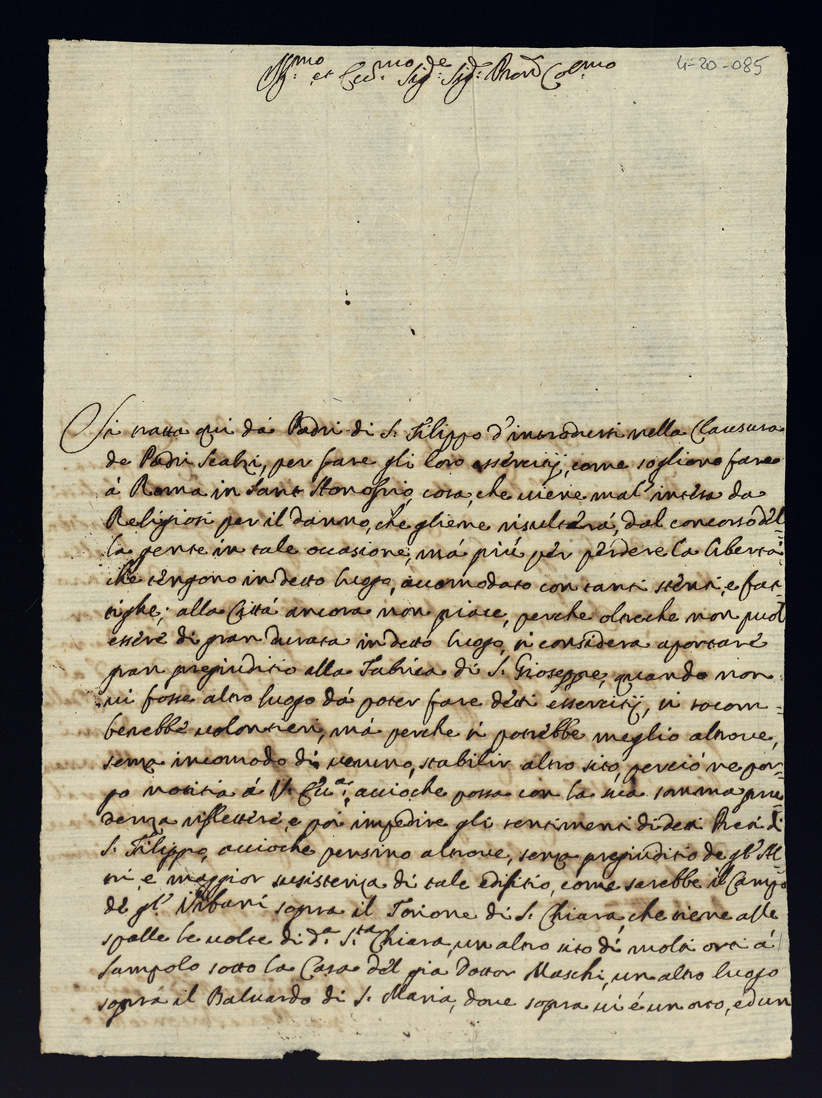 Ill.mo et Ecc.mo Sig.re Sig.re Pron Col.mo
4-20-085
Si tratta qui dá Padri di S. Filippo d'introdursi nella Clausura
de Padri Scalzi, per fare gli loro essércitij, come sogliono fare
á Roma in Sant Honofrio, cosa, che viene mal' intésa da
Religiosi per il danno, che gliene risulterá, dal concorso dél
la gente in tale occasione, má piú pér pérdere la libertá
che téngono in detto luogo, accomodato con tanti sténti, e fat-
tighe; alla Cittá ancora non piace, perche oltreche non puol
esseré di gran durata in detto luogo, si considera aportaré
gran pregiuditio alla Fabrica di S. Gioseppe, quando non
vi fosse altro luogo dá poter fare détti essercitij, si socom=
berebbé volontieri, má perche si potrébbe meglio altrove,
senza incomodo di veruno, stabilir altro sito, perció ne por-
go notitia á V. Ecc.a, accioche possa con la sua somma pru=
denza riflettére, e poi impedire gli sentimenti di detti Preti di
S. Filippo, accioche persino altrove, senza pregiuditio de gl' Al-
tri, e maggior susistenza di tale edifitio, come sarebbe il Campo
dé gl' Urbani sopra il Torione di S. Chiara, che viene alle
spalle le volte di d.a S.ta Chiara, un altro sito di molti orti á
Sanpolo sotto la Casa dél giá Dottor Maschi, un altro luogo
soprá il Baluardo di S. Maria, dove sopra vi é un orto, ed un